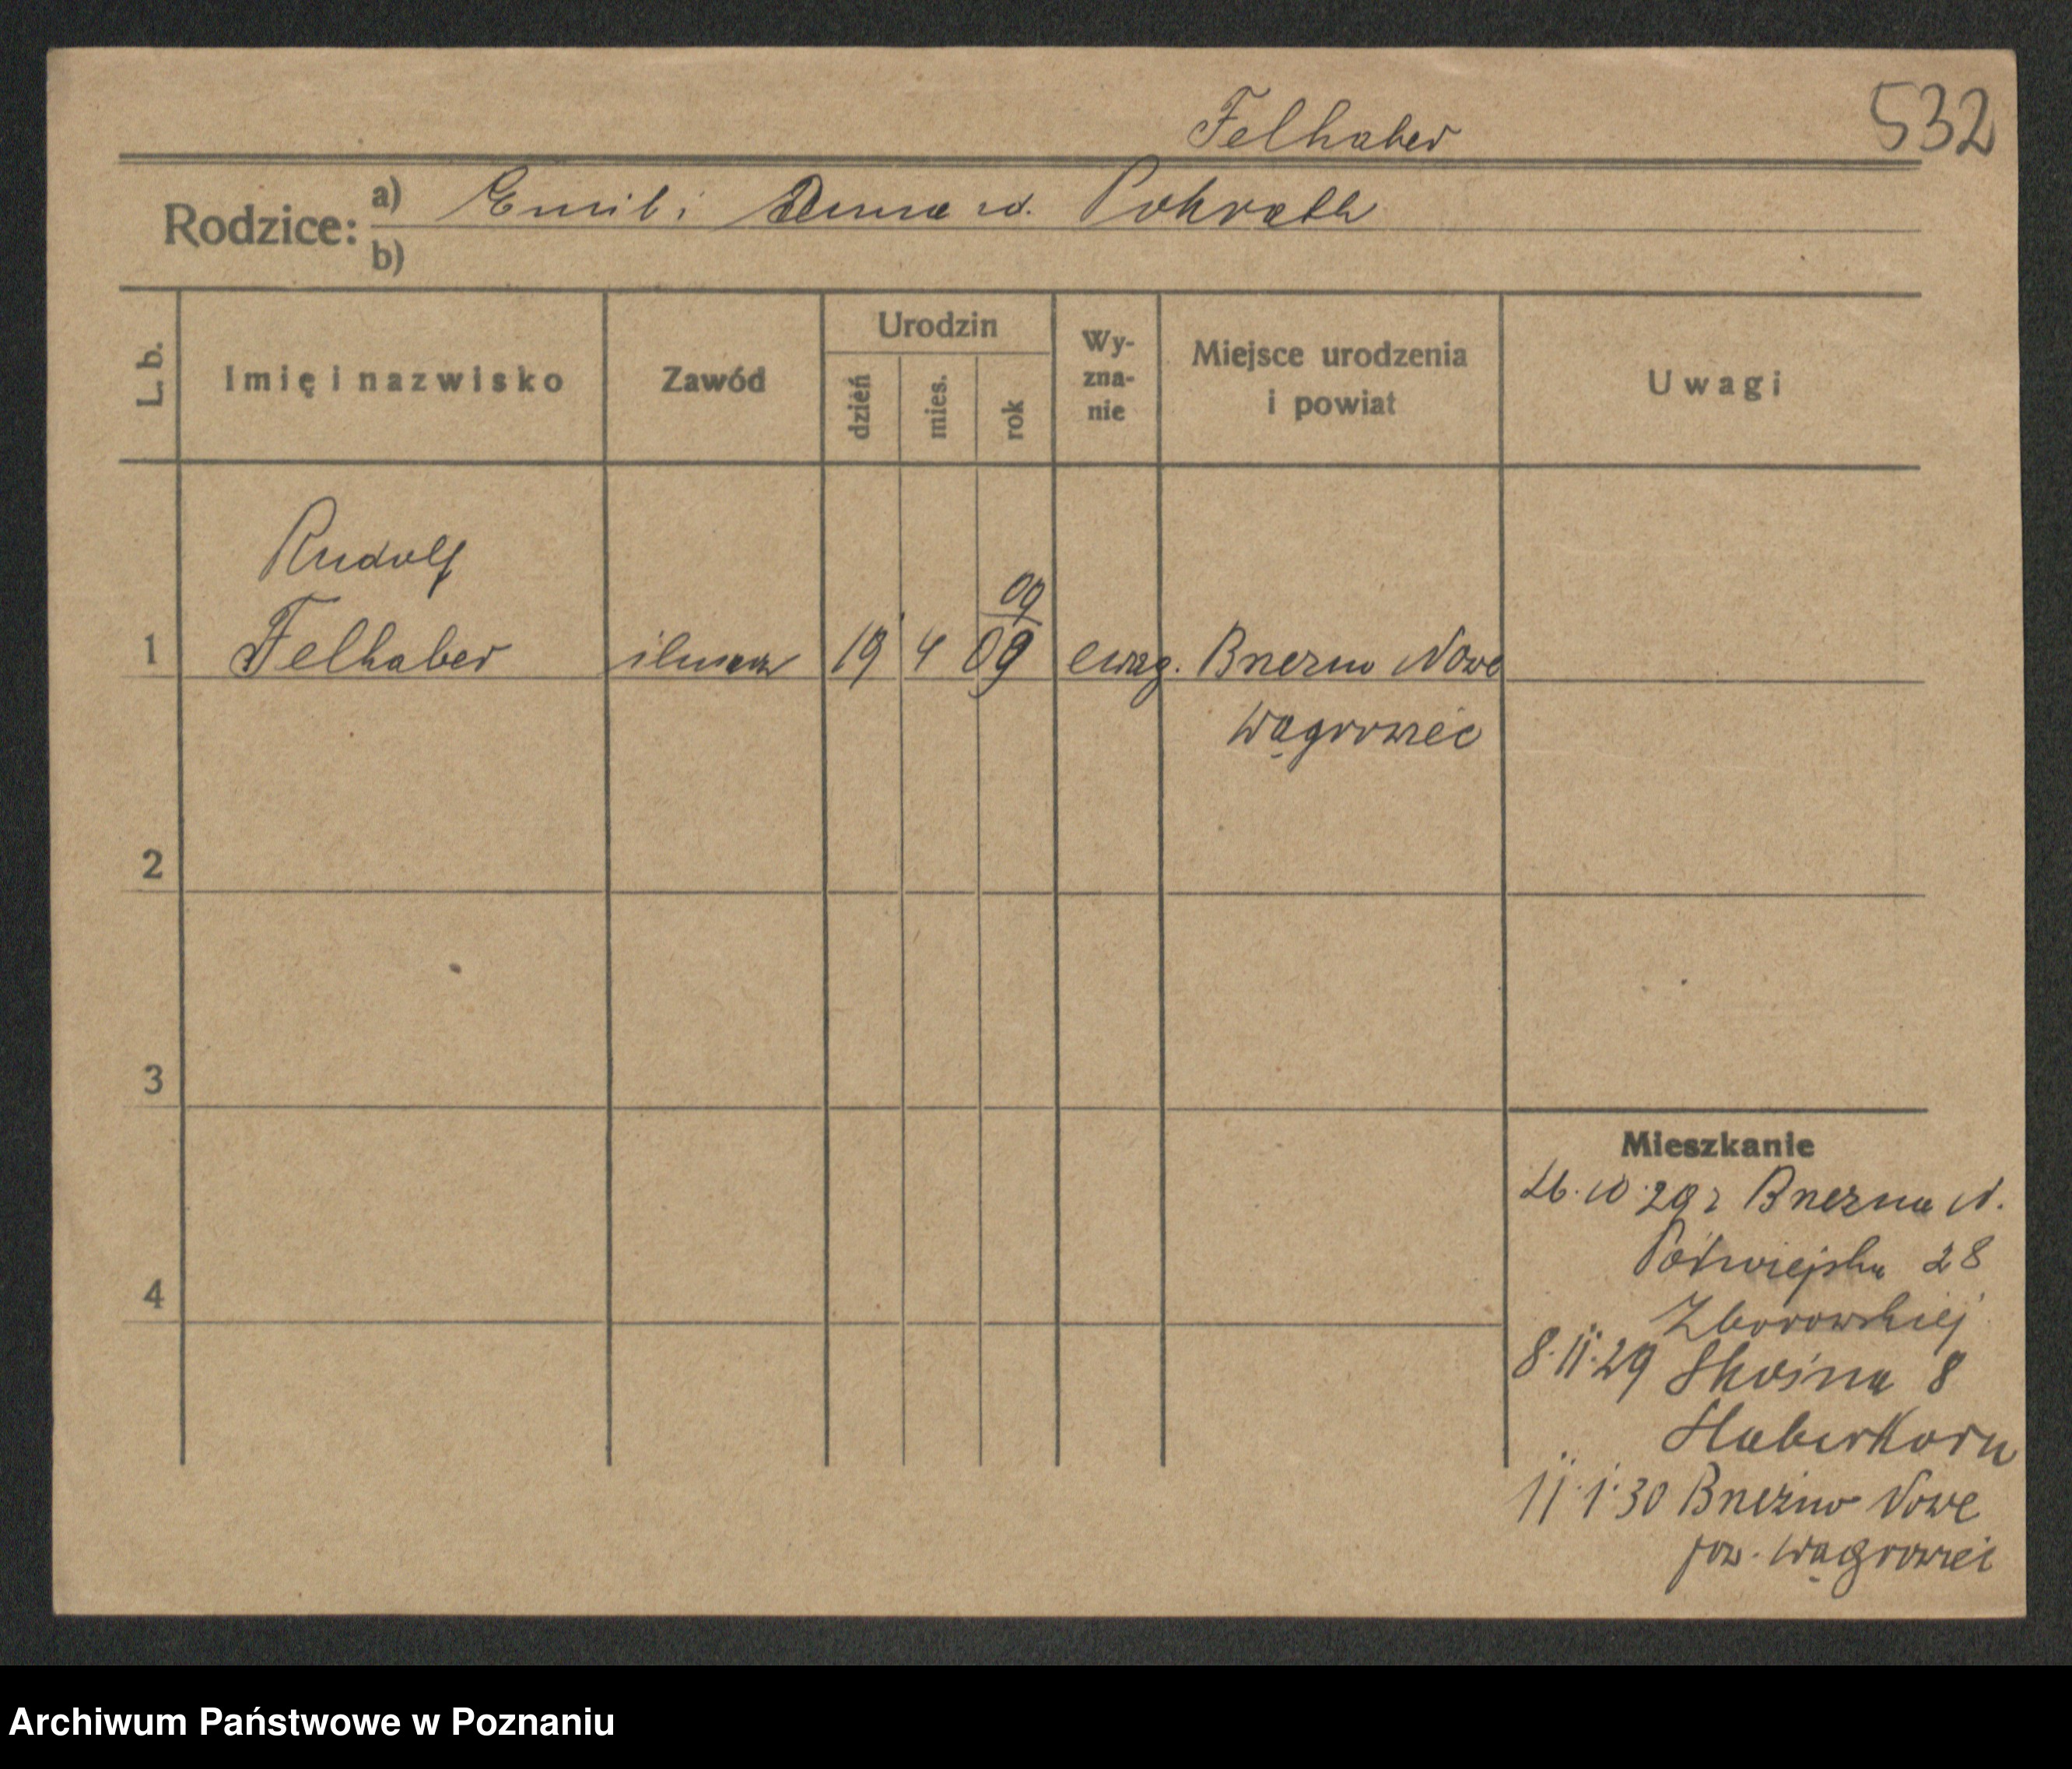 Felhaber
532
Rodzice:
a) Emil i Anna rd. Pokrath
b)
L. b.
Imię i nazwisko
Zawód
Urodzin
dzień
mies.
rok
Wy-
zna-
nie
Miejsce urodzenia
i powiat
Uwagi
Rudolf
09
1 Felhaber 19 4 09 ewag. Brzezno Nowe
Wągrowiec
2
3
4
Mieszkanie
26.10.29 r N.
Półwiejska 28
Zborowskiej
8.11.29 Skośna 8
Haberkorn
11.1.30 Nowe
pow. Wągrowiec
Archiwum Państwowe w Poznaniu